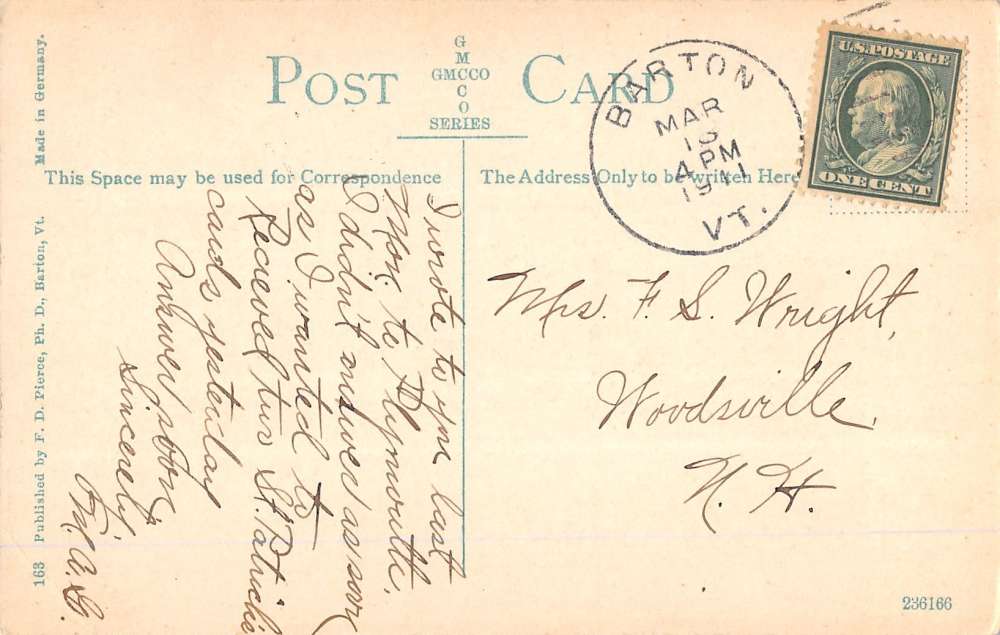 POST CARD
G
M
GMCCO
C
O
SERIES
This Space may be used for Correspondence
The Address Only to be written Here
BARTON
MAR
4 PM
1911
VT.
U.S. POSTAGE
ONE CENT
I wrote to you last
Mon. to Plymouth.
I didn't answer as soon
as I wanted to
Recieved two St. Patricks
cards yesterday
Answer soon.
Sincerely
M. A. G.
Mrs. F. S. Wright,
Woodsville,
N. H.
163 Published by F. D. Pierce, Ph. D., Barton, Vt. Made in Germany.
236166